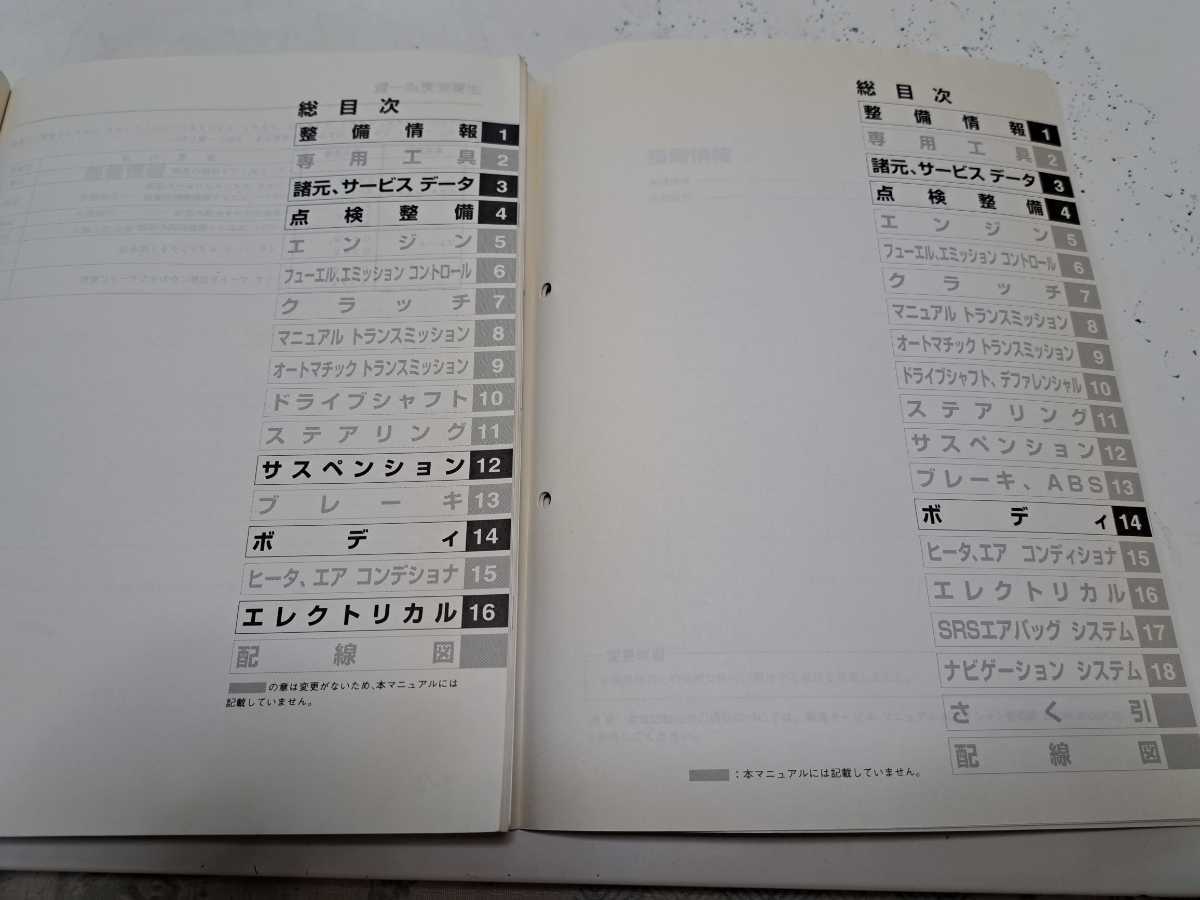 総目次
整備情報 1
専用工具 2
諸元、サービス データ 3
点検整備 4
エンジン 5
フューエル、エミッション コントロール 6
クラッチ 7
マニュアル トランスミッション 8
オートマチック トランスミッション 9
ドライブシャフト 10
ステアリング 11
サスペンション 12
ブレーキ 13
ボディ 14
ヒータ、エア コンデショナ 15
エレクトリカル 16
配線図
の章は変更がないため、本マニュアルには
記載していません。
総目次
整備情報 1
専用工具 2
諸元、サービス データ 3
点検整備 4
エンジン 5
フューエル、エミッション コントロール 6
クラッチ 7
マニュアル トランスミッション 8
オートマチック トランスミッション 9
ドライブシャフト、デファレンシャル 10
ステアリング 11
サスペンション 12
ブレーキ、ABS 13
ボディ 14
ヒータ、エア コンディショナ 15
エレクトリカル 16
SRSエアバッグ システム 17
ナビゲーション システム 18
さく引
配線図
：本マニュアルには記載していません。